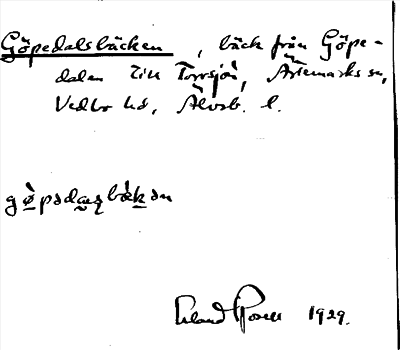 Göpedalsbäcken, bäck från Göpe-
dalen till Torrsjön, Ärtemarks sn,
Vedbo hd, Älvsb. l.
gø̀pədaʂbæ̀kən
Erland Rosell 1929.